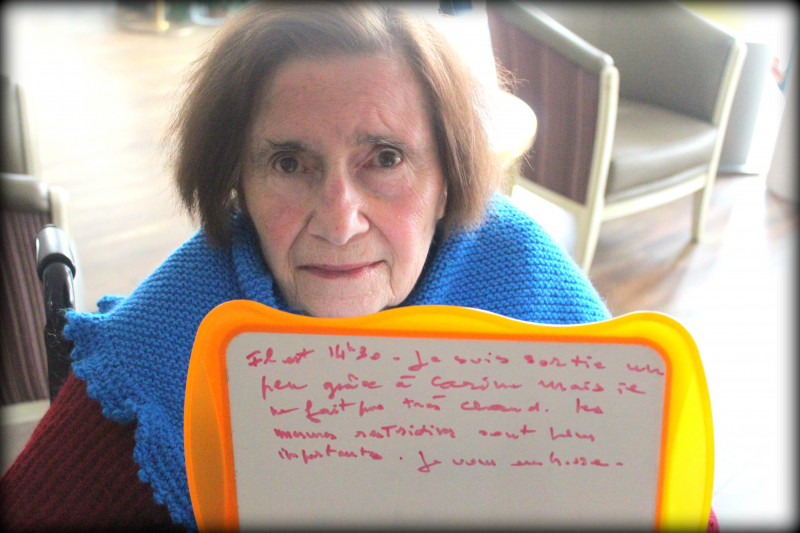 Il est 14h30. Je suis sortie un
peu grâce à Carine mais il
ne fait pas très chaud. Les
mesures restrictives sont plus
importantes. Je vous embrasse.